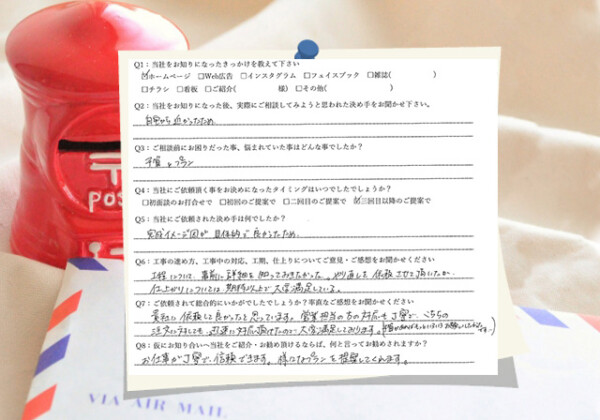 Q1：当社をお知りになったきっかけを教えて下さい
☑ホームページ □Web広告 □インスタグラム □フェイスブック □雑誌( )
□チラシ □看板 □ご紹介( 様) □その他( )
Q2：当社をお知りになった後、実際にご相談してみようと思われた決め手をお聞かせ下さい。
自宅から近かったため
Q3：ご相談前にお困りだった事、悩まれていた事はどんな事でしたか？
予算とプラン
Q4：当社にご依頼頂く事をお決めになったタイミングはいつでしたでしょうか？
□初面談のお打合せで □初回のご提案で □二回目のご提案で ☑三回目以降のご提案で
Q5：当社にご依頼された決め手は何でしたか？
完成イメージ図が具体的で良かったため。
Q6：工事の進め方、工事中の対応、工期、仕上りについてご意見・ご感想をお聞かせください
工程については、事前に詳細を知っておきたかった。やり直しも依頼させて頂いたが、
仕上がりについては期待以上で大変満足している。
Q7：ご依頼されて総合的にいかがでしたでしょうか？率直なご感想をお聞かせください
貴社に依頼して良かったと思っています。営業担当の方の対応も丁寧で、こちらの
注文に対しても迅速に対応頂けたので大変満足しております。
Q8：仮にお知り合いへ当社をご紹介・お勧め頂けるならば、何と言ってお勧めされますか？
お仕事が丁寧で、信頼できます。様々なプランを提案してくれます。
POS
VIA AIR MAIL